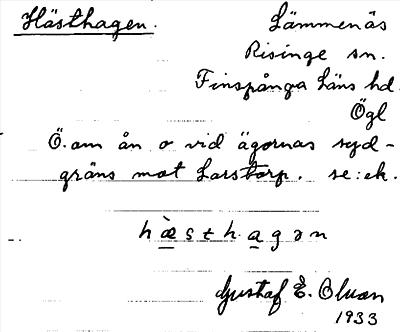 Hästhagen. Lämmenäs
Risinge sn.
Finspånga läns hd.
Ögl
Ö. om ån o vid ägornas syd-
gräns mot Larstorp. se: ek.
hæstha̲gən
Gustaf E.
1933